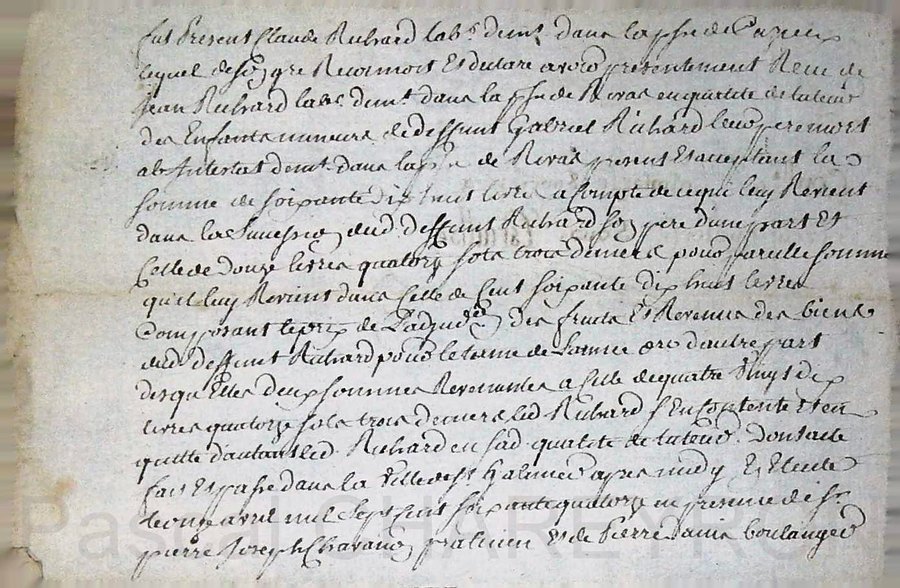 fut Present Claude Richard labr demt dans la psse de
lequel de son gre Reconnoit Et declare avoir presentement Receu de
jean Richard labr demt dans la psse de Rivas en qualite de tuteur
des Enfants mineurs de deffunt Gabriel Richard leur pere mort
ab Intestat demt dans la psse de Rivas present Et acceptant la
somme de soixante dix huit livres a Compte de ce qui luy Revient
dans la Succession dud. deffunt Richard son pere d'une part Et
Celle de douze livres quatorze sols trois deniers pour pareille somme
qu'il luy Revient dans Celle de Cent soixante dix huit livres
Composant le prix de L'adjudon des fruits Et Revenus des biens
dud deffunt Richard pour le terme de L'année d'autre part
desquelles deux sommes Revenantes a Celle de quatre vingt dix
livres quatorze sols trois deniers led Richard s'En Contente Et en
quitte d'autant led. Richard en sad. qualite de tuteur. Dont acte
fait Et passé dans la Ville de St Galmier apres midy Et Etude
le onze avril mil sept cent soixante quatorze en presence de sr
pierre Joseph praticien Et de Pierre boulanger
Pascal CHAREYRON